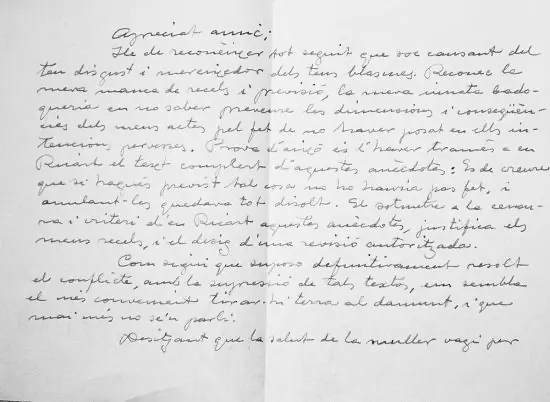 Apreciat amic:
He de reconèixer tot seguit que soc causant del
teu disgust i mereixedor dels teus blasmes. Reconec la
meva manca de recels i previsió, la meva innata bado-
queria en no saber preveure les dimensions i conseqüèn-
cies dels meus actes pel fet de no haver posat en ells in-
tencions perverses. Prova d'això és l'haver tramès a en
Ricart el text complert d'aquestes anècdotes: Es de creure
que si hagués previst tal cosa no ho hauria pas fet, i
anulant-les quedava tot disolt. El sotmetre a la censu-
ra i criteri d'en Ricart aquestes anècdotes, justifica els
meus recels, i el desig d'una revisió autoritzada.
Com sigui que suposo definitivament resolt
el conflicte, amb la supressió de tals textos, em sembla
el més convenient tirar-hi terra al damunt, i que
mai més no se'n parli.
Desitjant que la salut de la muller vagi per